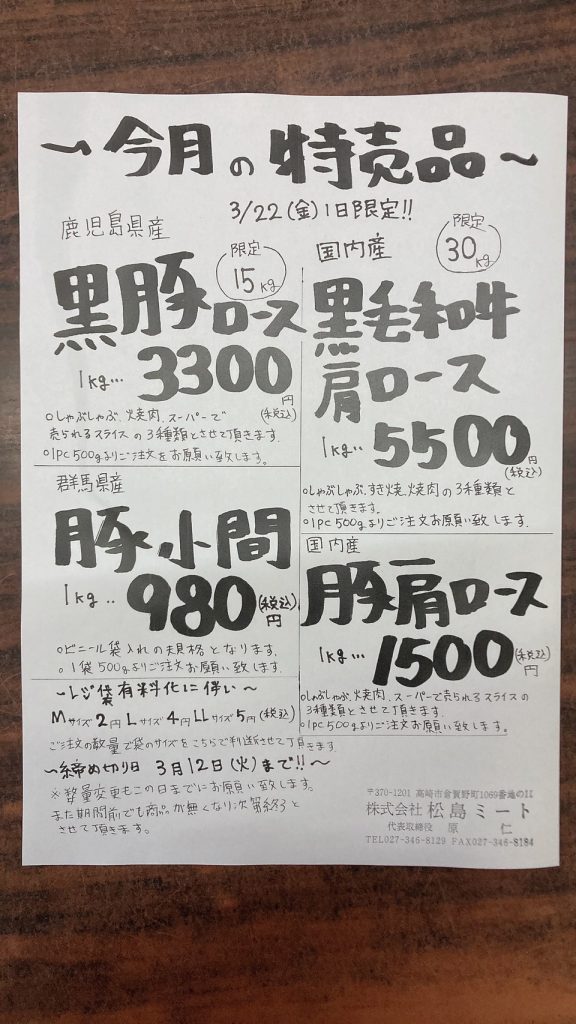 ~今月の特売品~
3/22(金)1日限定!!
鹿児島県産
限定
15kg
黒豚ロース
1kg… 3300円
(税込)
○しゃぶしゃぶ、焼肉、スーパーで
売られるスライスの3種類とさせて頂きます。
○1PC500gよりご注文をお願い致します。
国内産
限定
30kg
黒毛和牛
肩ロース
1kg‥ 5500円
(税込)
○しゃぶしゃぶ、すき焼、焼肉の3種類と
させて頂きます。
○1PC500gよりご注文お願い致します。
群馬県産
豚小間
1kg‥ 980円
(税込)
○ビニール袋入れの規格となります。
○1袋500gよりご注文お願い致します。
国内産
豚肩ロース
1kg… 1500円
(税込)
○しゃぶしゃぶ、焼肉、スーパーで売られるスライスの
3種類とさせて頂きます。
○1PC500gよりご注文お願い致します。
~レジ袋有料化に伴い~
Mサイズ2円 Lサイズ4円 LLサイズ5円(税込)
ご注文の数量で袋のサイズをこちらで判断させて頂きます
~締め切り日 3月12日(火)まで!!~
※数量変更もこの日までにお願い致します。
また期間前でも商品が無くなり次第終了と
させて頂きます。
〒370-1201 高崎市倉賀野町1069番地の11
株式会社 松島ミート
代表取締役 原 仁
TEL027-346-8129 FAX027-346-8184